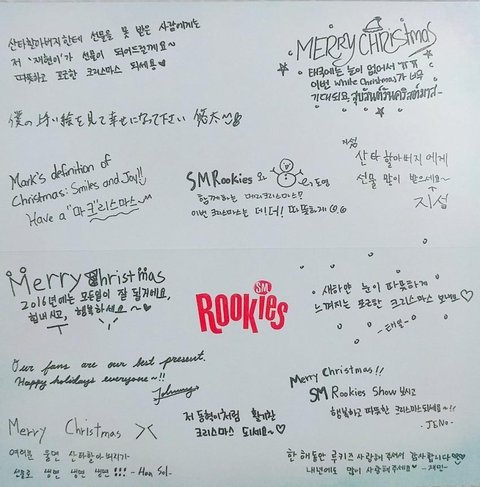 산타할아버지한테 선물을 못 받은 사람에게는
저 '재현이'가 선물이 되어드릴께요~
따뜻하고 포근한 크리스마스 되세용♡
MERRY CHRISTmas
태국에는 눈이 없어서 ㅠㅠ
이번 White Christmas가 너무
기대되요 สุขสันต์วันคริสต์มาส~
僕の上手い絵を見て幸せになって下さい 悠太
Mark's definition of
Christmas: Smiles and Joy!!
Have a "마크"리스마스~
SMRookies 와 도영
함께하는 메리크리스마스?
이번 크리스마스는 데데! 따뜻하게
지성
산타 할아버지에게
선물 많이 받으세요~
지성
Merry Christmas
2016년에는 모든일이 잘 될거에요,
힘내시고, 행복하세요~!
SM
ROOKIES
새하얀 눈이 따뜻하게
느껴지는 포근한 크리스마스 보내요♡
-태일-
Our fans are our best present.
Happy holidays everyone~!!
Johnny
저 동혁이처럼 활기찬
크리스마스 되세요~♡
Merry Christmas!!
SMRookies Show 보시고
행복하고 따뜻한 크리스마스되세요~!!
-JENO-
Merry Christmas ><
여러분 울면 산타할아버지가
선물로 냉면 냉면 냉면!!! -Han Sol-
한 해동안 루키즈 사랑해 주셔서 감사합니다
내년에도 많이 사랑해주세요♡ -재민-